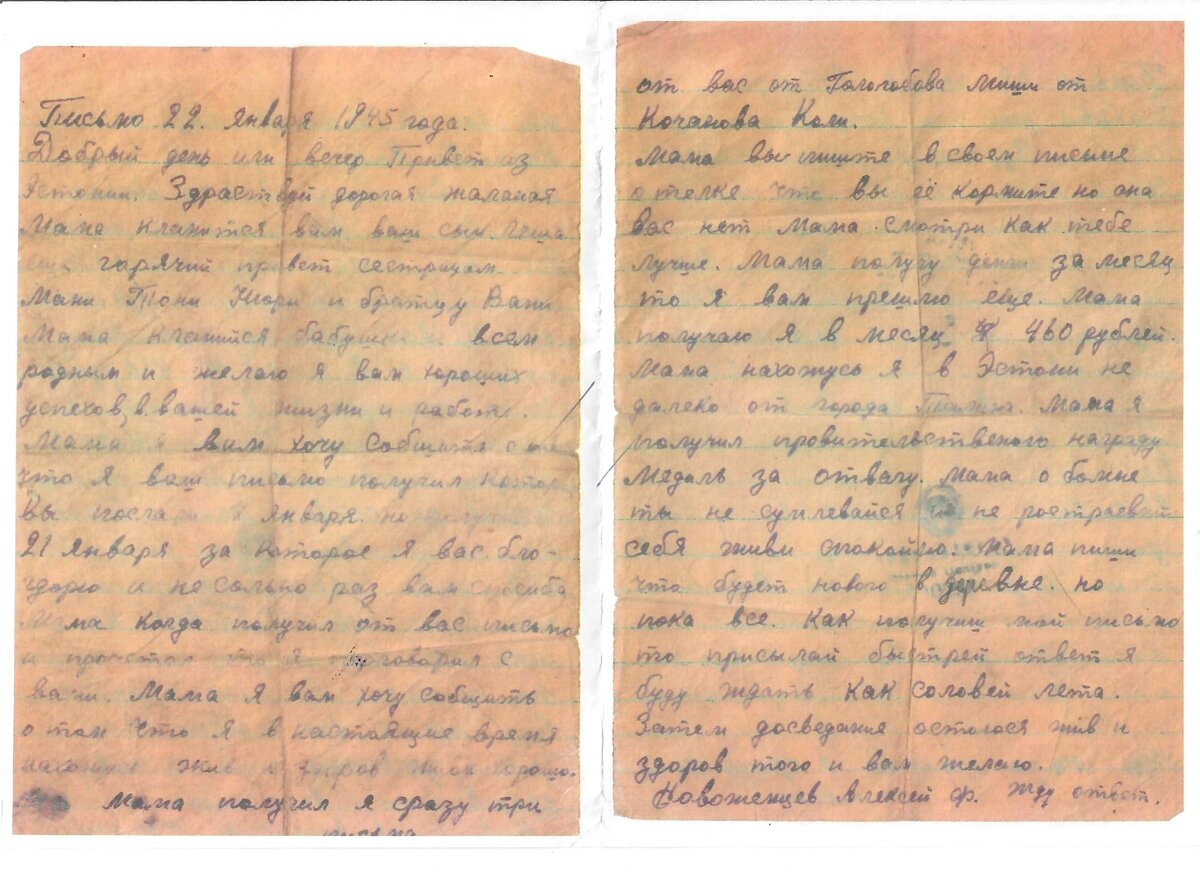 Письмо 22. Января 1945 года.
Добрый день или вечер Привет из
Эстонии. Здраствой дорогая жаланая
Мама кланитса вам ваш сын Леша
еще гарячий привет сестрицам.
Мани Тони Нюри и братцу Вани
Мама кланитса бабушке и всем
родным и желаю я вам хороших
успехов, в вашей жизни и работе.
Мама я вам хочу собщить о
что я ваш письмо получил
вы послали января. но
21 Января за которое я вас бло-
гдорю и несолько раз вам спосиба
Мама когда получил от вас письмо
и прочетал то я поговорил с
вами. Мама я вам хочу собщить
о том что я в настоящие время
нахожусь жив и здоров живу хорошо.
Мама получил я сразу три
письма
от вас от Гологобова Миши от
Кочанова Коли.
Мама вы пишите в своем письме
о телке что вы её кормите но она
вас нет Мама смотри как тебе
лучше. Мама получу денги за месяц
то я вам пришлю еще. Мама
получаю я в месяц 460 рублей.
Мама нахожусь я в Эстони не
далеко от города. Мама я
получил провительственого награду
Медаль за отвагу. Мама о бомне
ты не сумлевайся не ростраевай
себя живи спокойно. Мама пиши
что будет нового в деревне. но
пока все. Как получиш мой письмо
то присылай быстрей ответ я
буду ждать как соловей лета.
Затем досведание остогося жив и
здоров того и вам желаю.
Новоженцев Алексей Ф. Жду отвот.